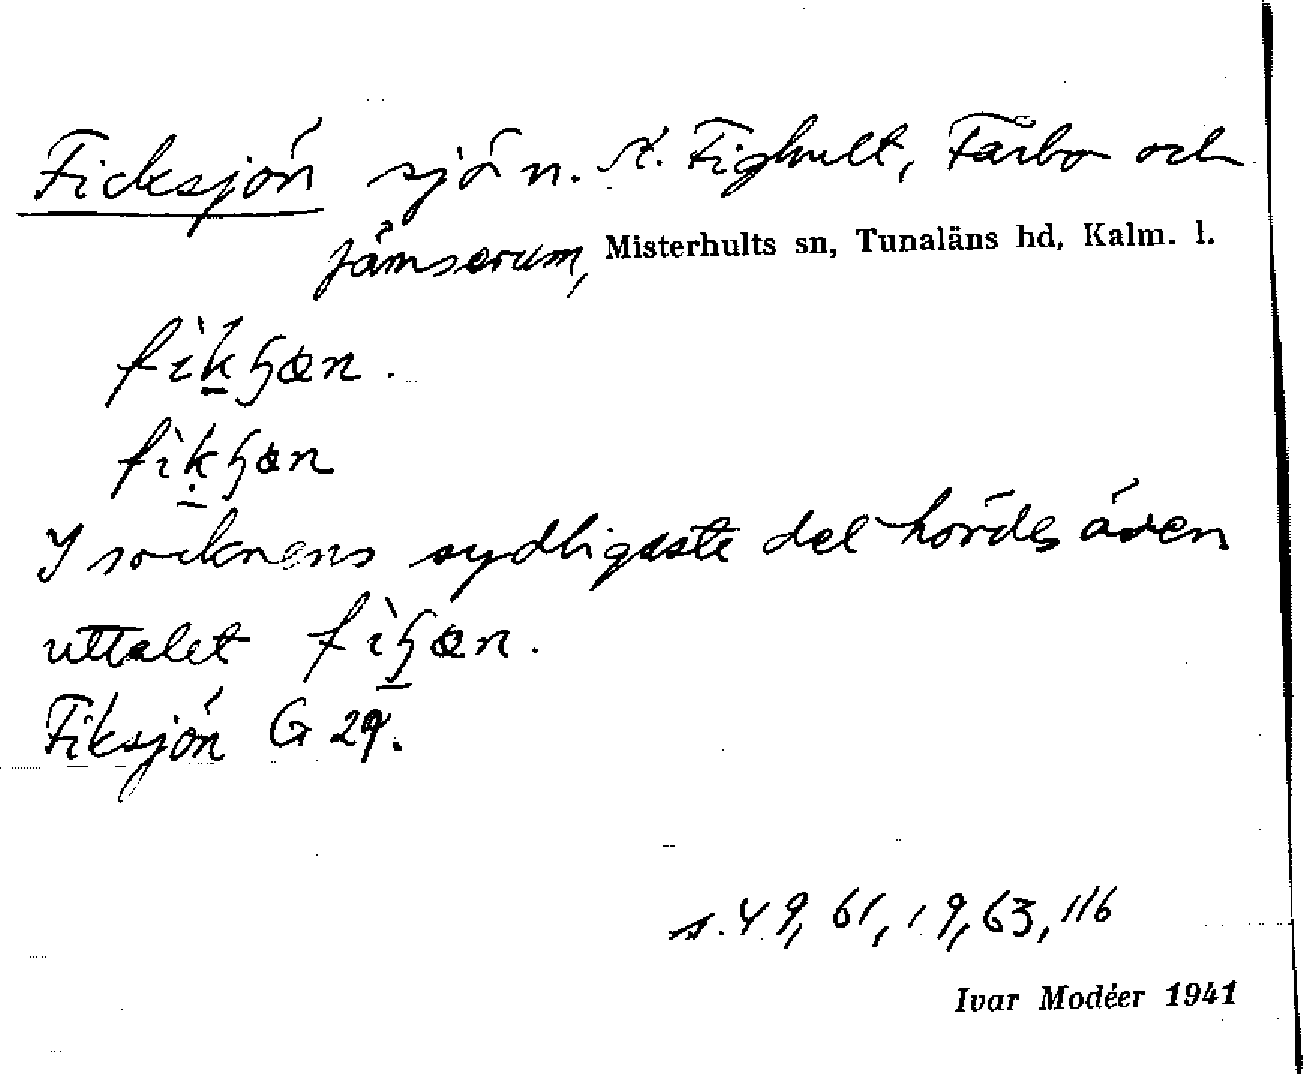 Ficksjön sjö n. st. Fighult, Fårbo och
Jämserum, Misterhults sn, Tunaläns hd, Kalm. l.
fìkɧœn.
fìḳɧœn
I socknens sydligaste del hördes även
uttalet fìɧœn.
Fiksjön G 29.
s. 49, 61, 19, 63, 116
Ivar Modéer 1941